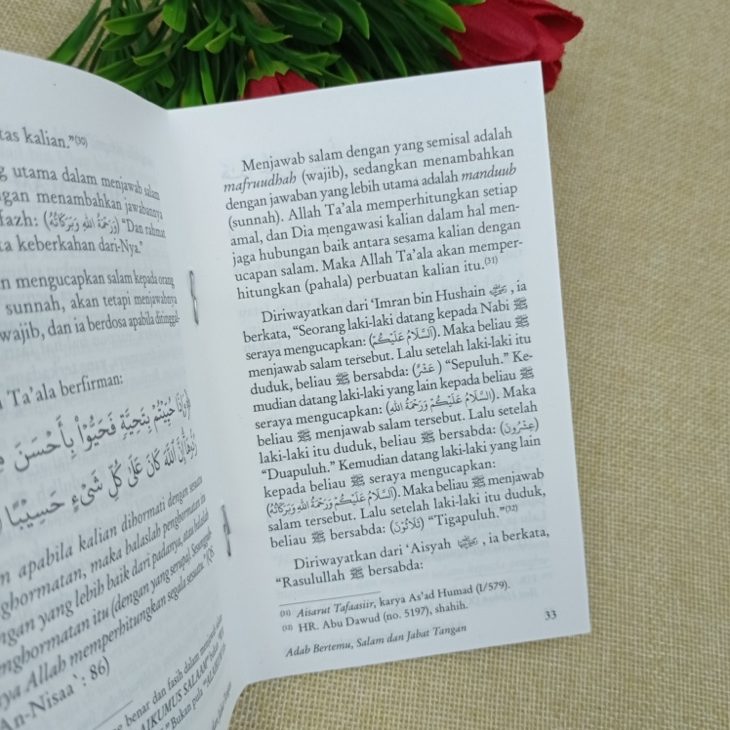 tas kalian."(30)
g utama dalam menjawab salam
ngan menambahkan jawabannya
fazh: (وَرَحْمَةُ اللهِ وَبَرَكَاتُهُ) "Dan rahmat
ta keberkahan dari-Nya."
n mengucapkan salam kepada orang
sunnah, akan tetapi menjawabnya
wajib, dan ia berdosa apabila ditinggal-
Ta'ala berfirman:
﴿وَإِذَا حُيِّيتُمْ بِتَحِيَّةٍ فَحَيُّوا بِأَحْسَنَ
رُدُّوهَا إِنَّ اللَّهَ كَانَ عَلَىٰ كُلِّ شَيْءٍ حَسِيبًا
n apabila kalian dihormati dengan sesuatu
ghormatan, maka balaslah penghormatan itu
ngan yang lebih baik dari padanya, atau balaslah
nghormatan itu (dengan yang serupa). Sesungguh
ya Allah memperhitungkan segala sesuatu." (QS
An-Nisaa`: 86)
benar dan fasih dalam
AIKUMUS SALAAM"
Bukan pula
Menjawab salam dengan yang semisal adalah
mafruudhah (wajib), sedangkan menambahkan
dengan jawaban yang lebih utama adalah manduub
(sunnah). Allah Ta'ala memperhitungkan setiap
amal, dan Dia mengawasi kalian dalam hal men-
jaga hubungan baik antara sesama kalian dengan
ucapan salam. Maka Allah Ta'ala akan memper-
hitungkan (pahala) perbuatan kalian itu.(31)
Diriwayatkan dari 'Imran bin Hushain, ia
berkata, "Seorang laki-laki datang kepada Nabi ﷺ
seraya mengucapkan: (اَلسَّلَامُ عَلَيْكُمْ). Maka beliau ﷺ
menjawab salam tersebut. Lalu setelah laki-laki itu
duduk, beliau ﷺ bersabda: (عَشْرٌ) "Sepuluh." Ke-
mudian datang laki-laki yang lain kepada beliau ﷺ
seraya mengucapkan: (اَلسَّلَامُ عَلَيْكُمْ وَرَحْمَةُ اللهِ). Maka
beliau ﷺ menjawab salam tersebut. Lalu setelah
laki-laki itu duduk, beliau ﷺ bersabda: (عِشْرُوْنَ)
"Duapuluh." Kemudian datang laki-laki yang lain
kepada beliau ﷺ seraya mengucapkan:
(اَلسَّلَامُ عَلَيْكُمْ وَرَحْمَةُ اللهِ وَبَرَكَاتُهُ). Maka beliau ﷺ menjawab
salam tersebut. Lalu setelah laki-laki itu duduk,
beliau ﷺ bersabda: (ثَلَاثُوْنَ) "Tigapuluh."(32)
Diriwayatkan dari 'Aisyah, ia berkata,
"Rasulullah ﷺ bersabda:
(31) Aisarut Tafaasiir, karya As'ad Humad (I/579).
(32) HR. Abu Dawud (no. 5197), shahih.
Adab Bertemu, Salam dan Jabat Tangan
33